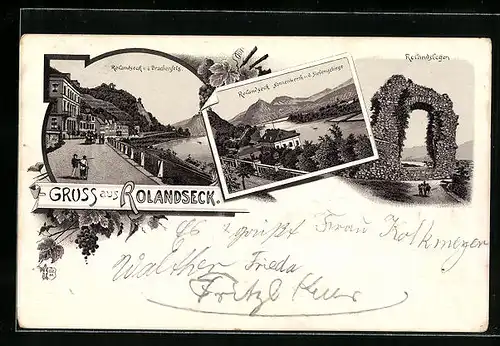 Rolandseck u. d. Drachenfels.
Rolandseck Nonnenwerth u. d. Siebengebirge
Rolandsbogen
GRUSS aus ROLANDSECK.
Es grüßt Frau Kolkmeyer
Walther Frieda
Fritz &